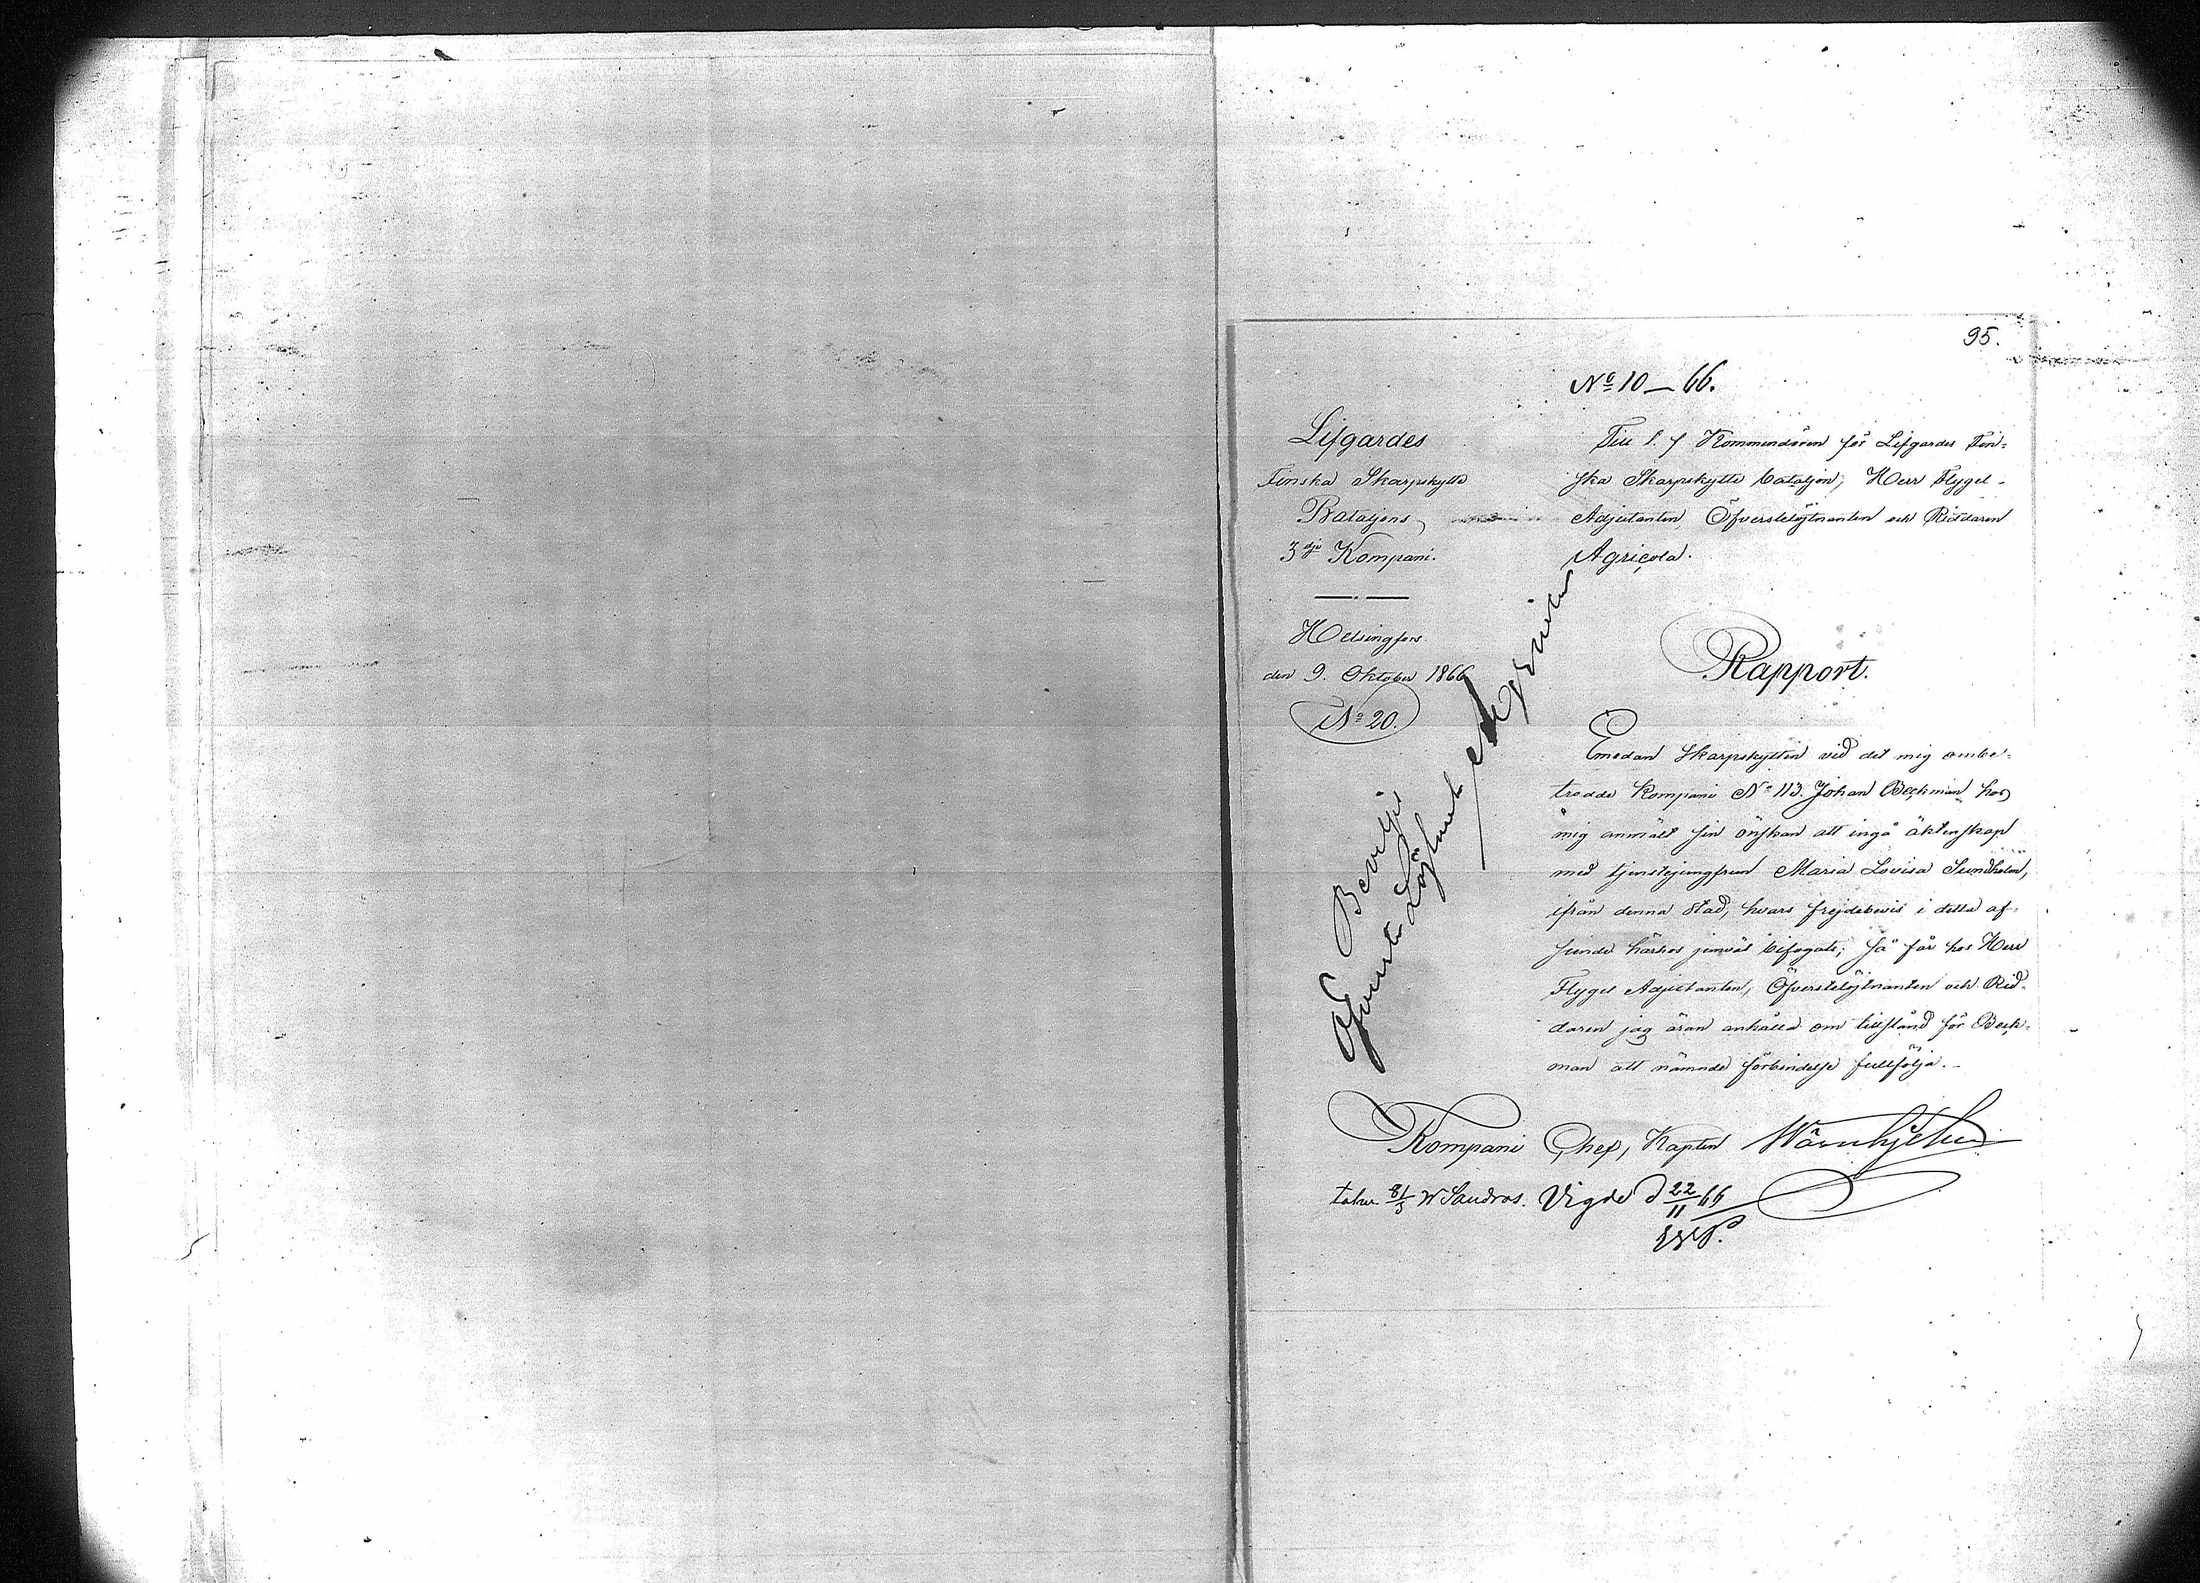 95.
Nº 10 — 66.
Lifgardes
Finska Skarpskytte
Bataljons
3dje Kompani.
Helsingfors
den 9. Oktober 1866
Nº 20.
Till t. f. Kommendören för Lifgardes Fin-
ska Skarpskytte bataljon, Herr Flygel-
Adjutanten Öfverstelöjtnanten och Riddaren
Agricola.
Rapport.
Emedan Skarpskytten vid det mig ombe-
trodde Kompani Nº 113. Johan Beckman hos
mig anmält sin önskan att ingå äktenskap
med tjenstejungfrun Maria Lovisa Sundholm,
ifrån denna stad, hvars frejdebevis i detta af-
seende härhos jemväl bifogats; så får hos Herr
Flygel Adjutanten, Öfverstelöjtnanten och Rid-
daren jag äran anhålla om tillstånd för Beck-
man att nämnde förbindelse fullfölja.
Beviljes
Öfverste Löjtnant Agricola
Kompani Chef, Kapten Wärnhjelm
W Sandros. Vigde d 22/11 66